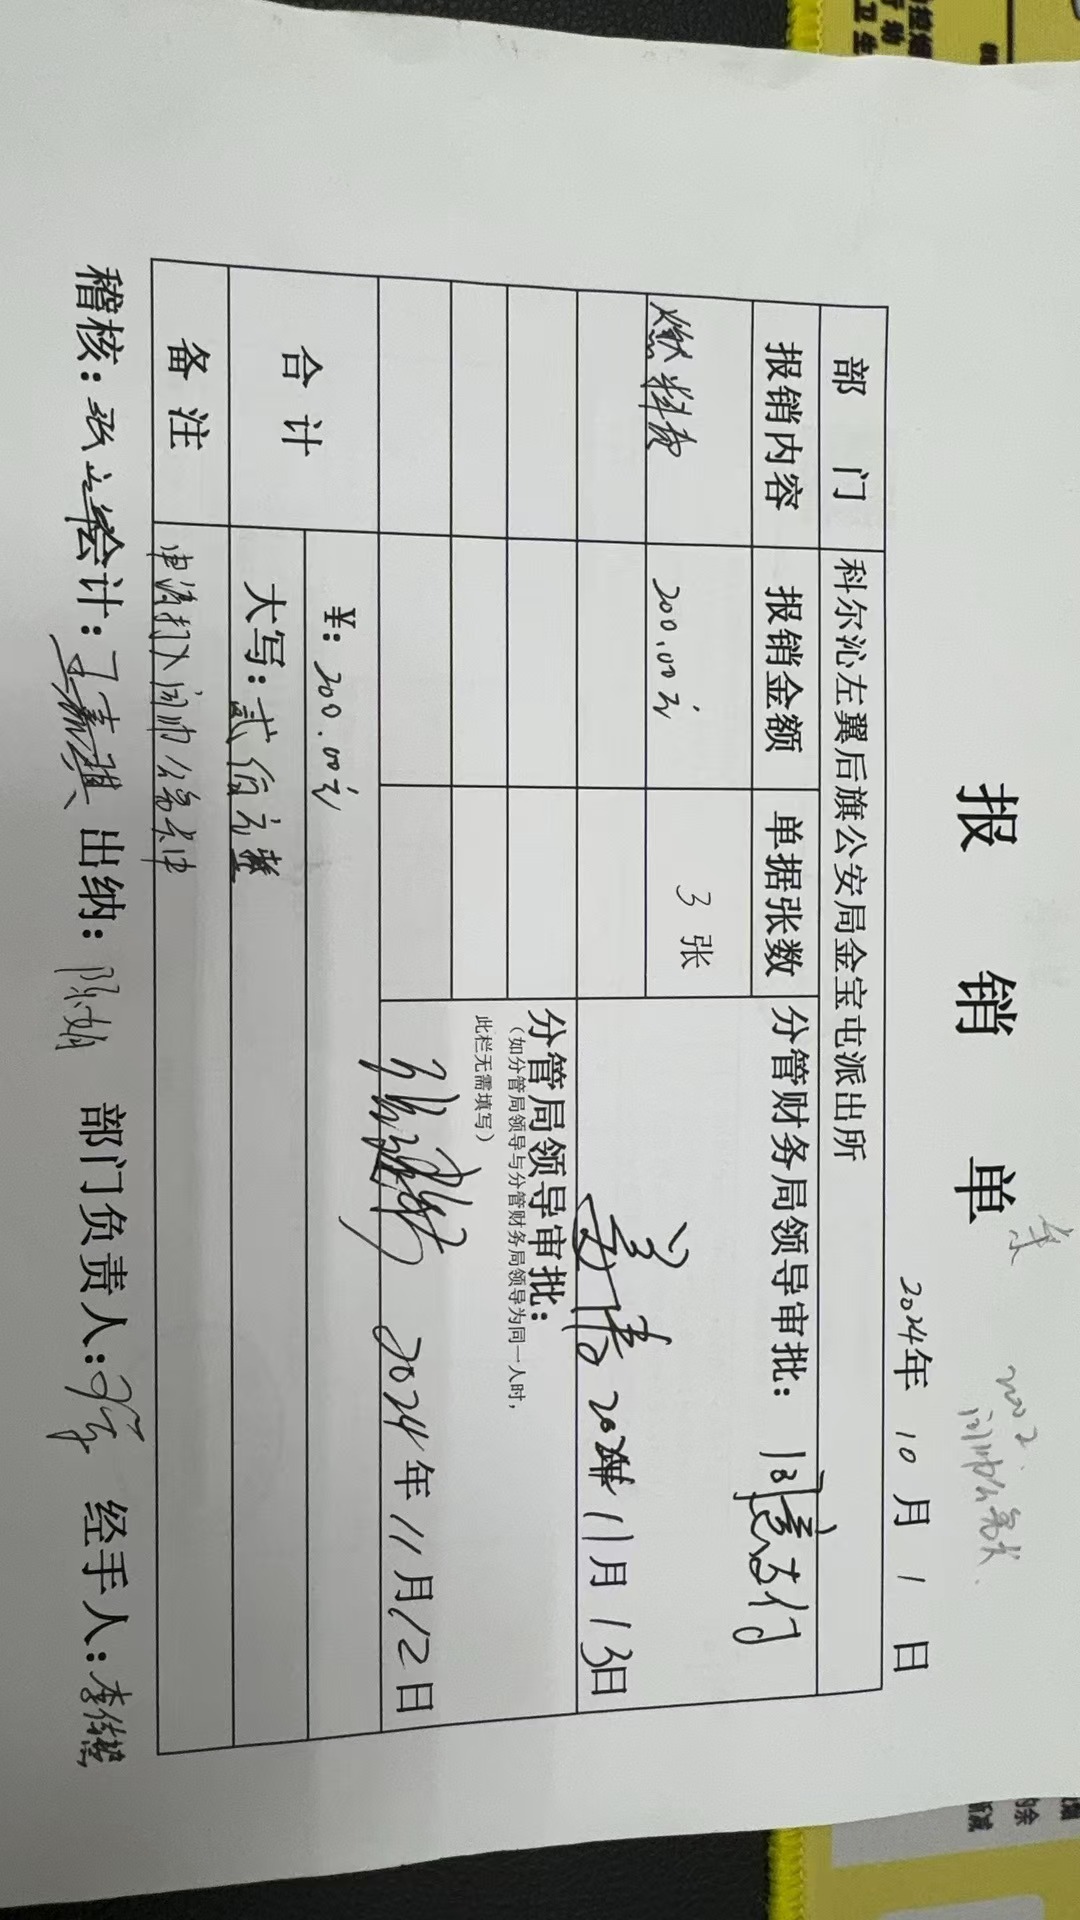 报 销 单
2024年 10 月 1 日
部 门 科尔沁左翼后旗公安局金宝屯派出所
报销内容 报销金额 单据张数 分管财务局领导审批： 同意支付
燃料费 200.00元 3张
2024年11月13日
分管局领导审批：
（如分管局领导与分管财务局领导为同一人时，
此栏无需填写）
2024年11月12日
合 计 ¥：200.00元
大写：贰佰元整
备 注 申请打入闫帅公务卡中
稽核： 会计：王嘉琪 出纳：陈娟 部门负责人： 经手人：